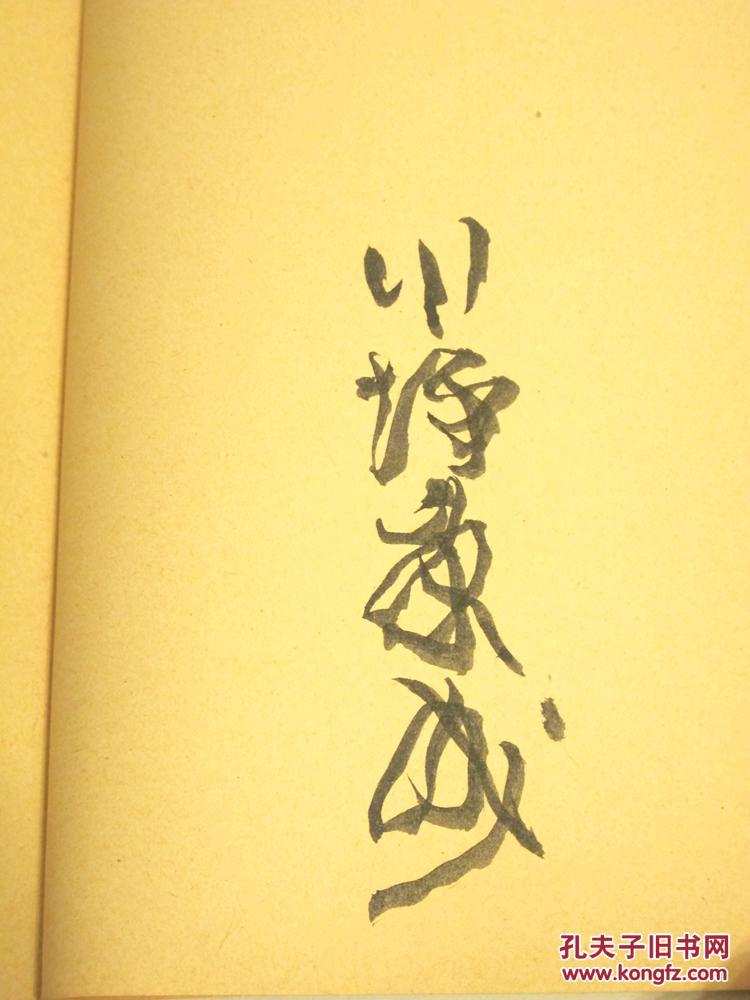 川端康成
孔夫子旧书网
www.kongfz.com